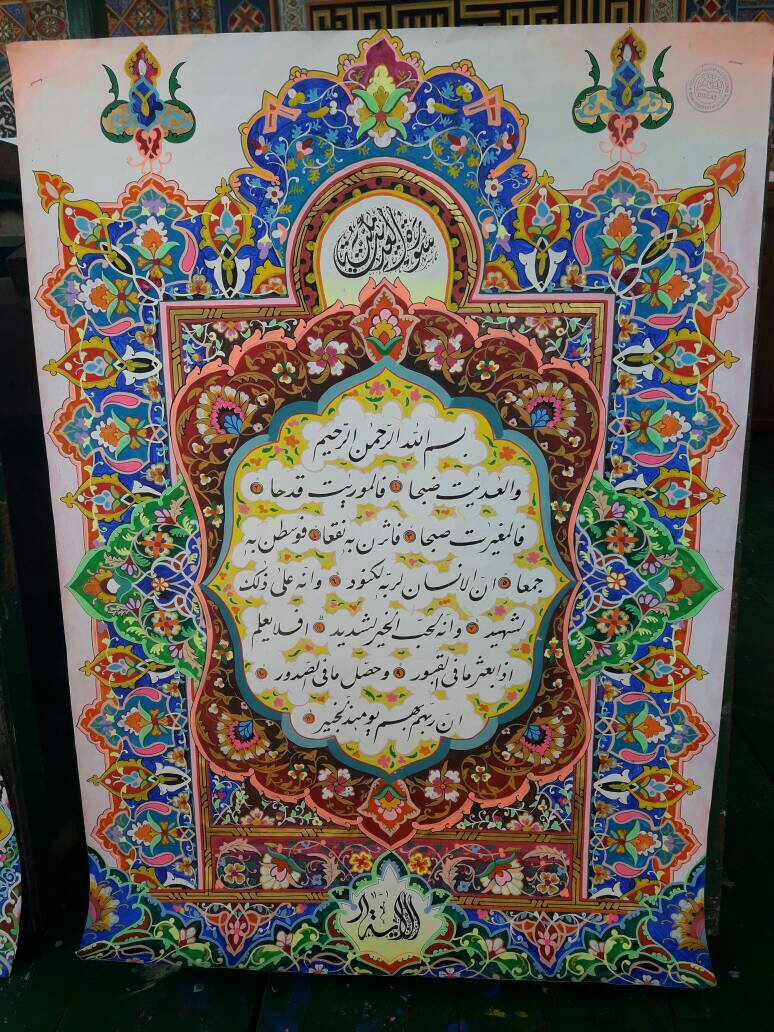 سورة العاديات مكية
بسم الله الرحمن الرحيم
والعديت ضبحا ۱ فالموريت قدحا ۲
فالمغيرت صبحا ۳ فاثرن به نقعا ٤ فوسطن به
جمعا ٥ ان الانسان لربه لكنود ٦ وانه على ذلك
لشهيد ۷ وانه لحب الخير لشديد ۸ افلا يعلم
اذا بعثر ما فى القبور ۹ وحصل ما فى الصدور ۱۰
ان ربهم بهم يومئذ لخبير ۱۱